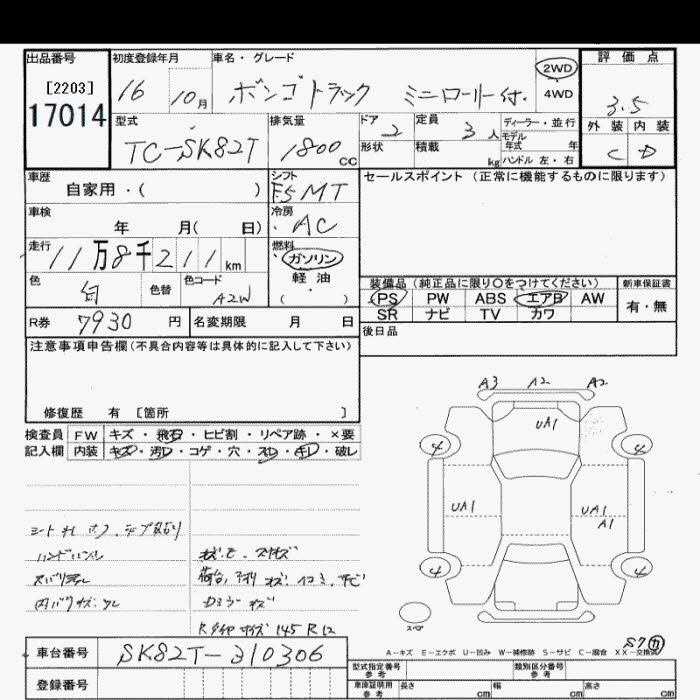 出品番号
[2203]
17014
初度登録年月
16 10月
車名・グレード
ボンゴトラック ミニローリー付.
2WD
4WD
評価点
3.5
外装 内装
C D
型式
TC-SK82T
排気量
1800 cc
ドア 2
形状
定員 3人
積載 kg
ディーラー・並行
モデル
年式 年
ハンドル 左・右
車歴
自家用・( )
シフト
F5MT
セールスポイント(正常に機能するものに限ります)
車検
年 月( 日)
冷房
AC
走行
11万8千211km
燃料
ガソリン
軽油
( )
色
白
色替
色コード
A2W
装備品(純正品に限り○をつけてください)
新車保証書
PS PW ABS エアB AW
有・無
SR ナビ TV カワ
R券 7930 円
名変期限 月 日
後日品
注意事項申告欄(不具合内容等は具体的に記入して下さい)
修復歴 有 [箇所 ]
検査員
記入欄
FW キズ・飛石・ヒビ割・リペア跡・×要
内装 キズ・汚レ・コゲ・穴・スレ・キレ・破レ
A3 A2 A2
UA1
4 4
UA1
UA1
A1
4 4
スペア
Rタイヤサイズ 145R12
S7
A-キズ E-エクボ U-凹み W-補修跡 S-サビ C-腐食 XX-交換済
車台番号 SK82T-310306
登録番号
型式指定番号
参考
類別区分番号
参考
車庫証明用
参考
長さ cm 幅 cm 高さ cm